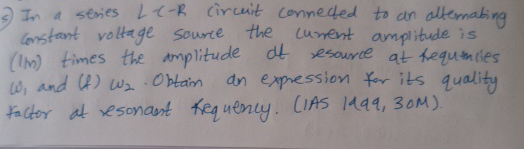 5) In a series L-C-R circuit connected to an alternating
constant voltage source the current amplitude is
(1/n) times the amplitude at resource at frequencies
ω₁ and (&) ω₂. Obtain an expression for its quality
factor at resonant frequency. (IAS 1999, 30M).